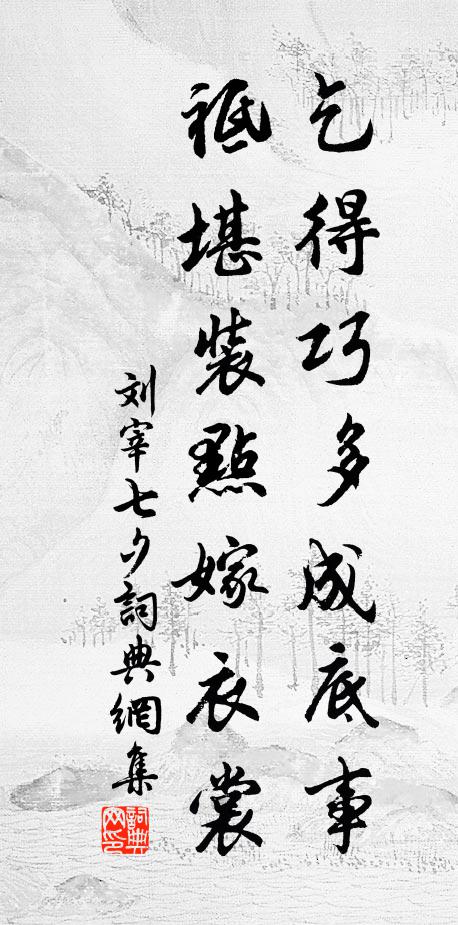 乞得巧多成底事
祗堪裝點嫁衣裳
刘宰七夕詞典網集
詞典网印